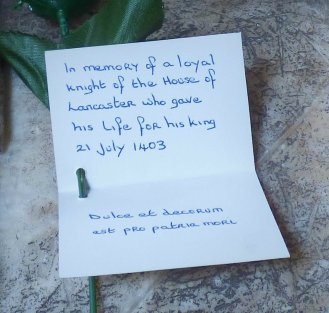 In memory of a loyal
Knight of the House of
Lancaster who gave
his Life for his King
21 July 1403
Dulce et decorum
est pro patria mori